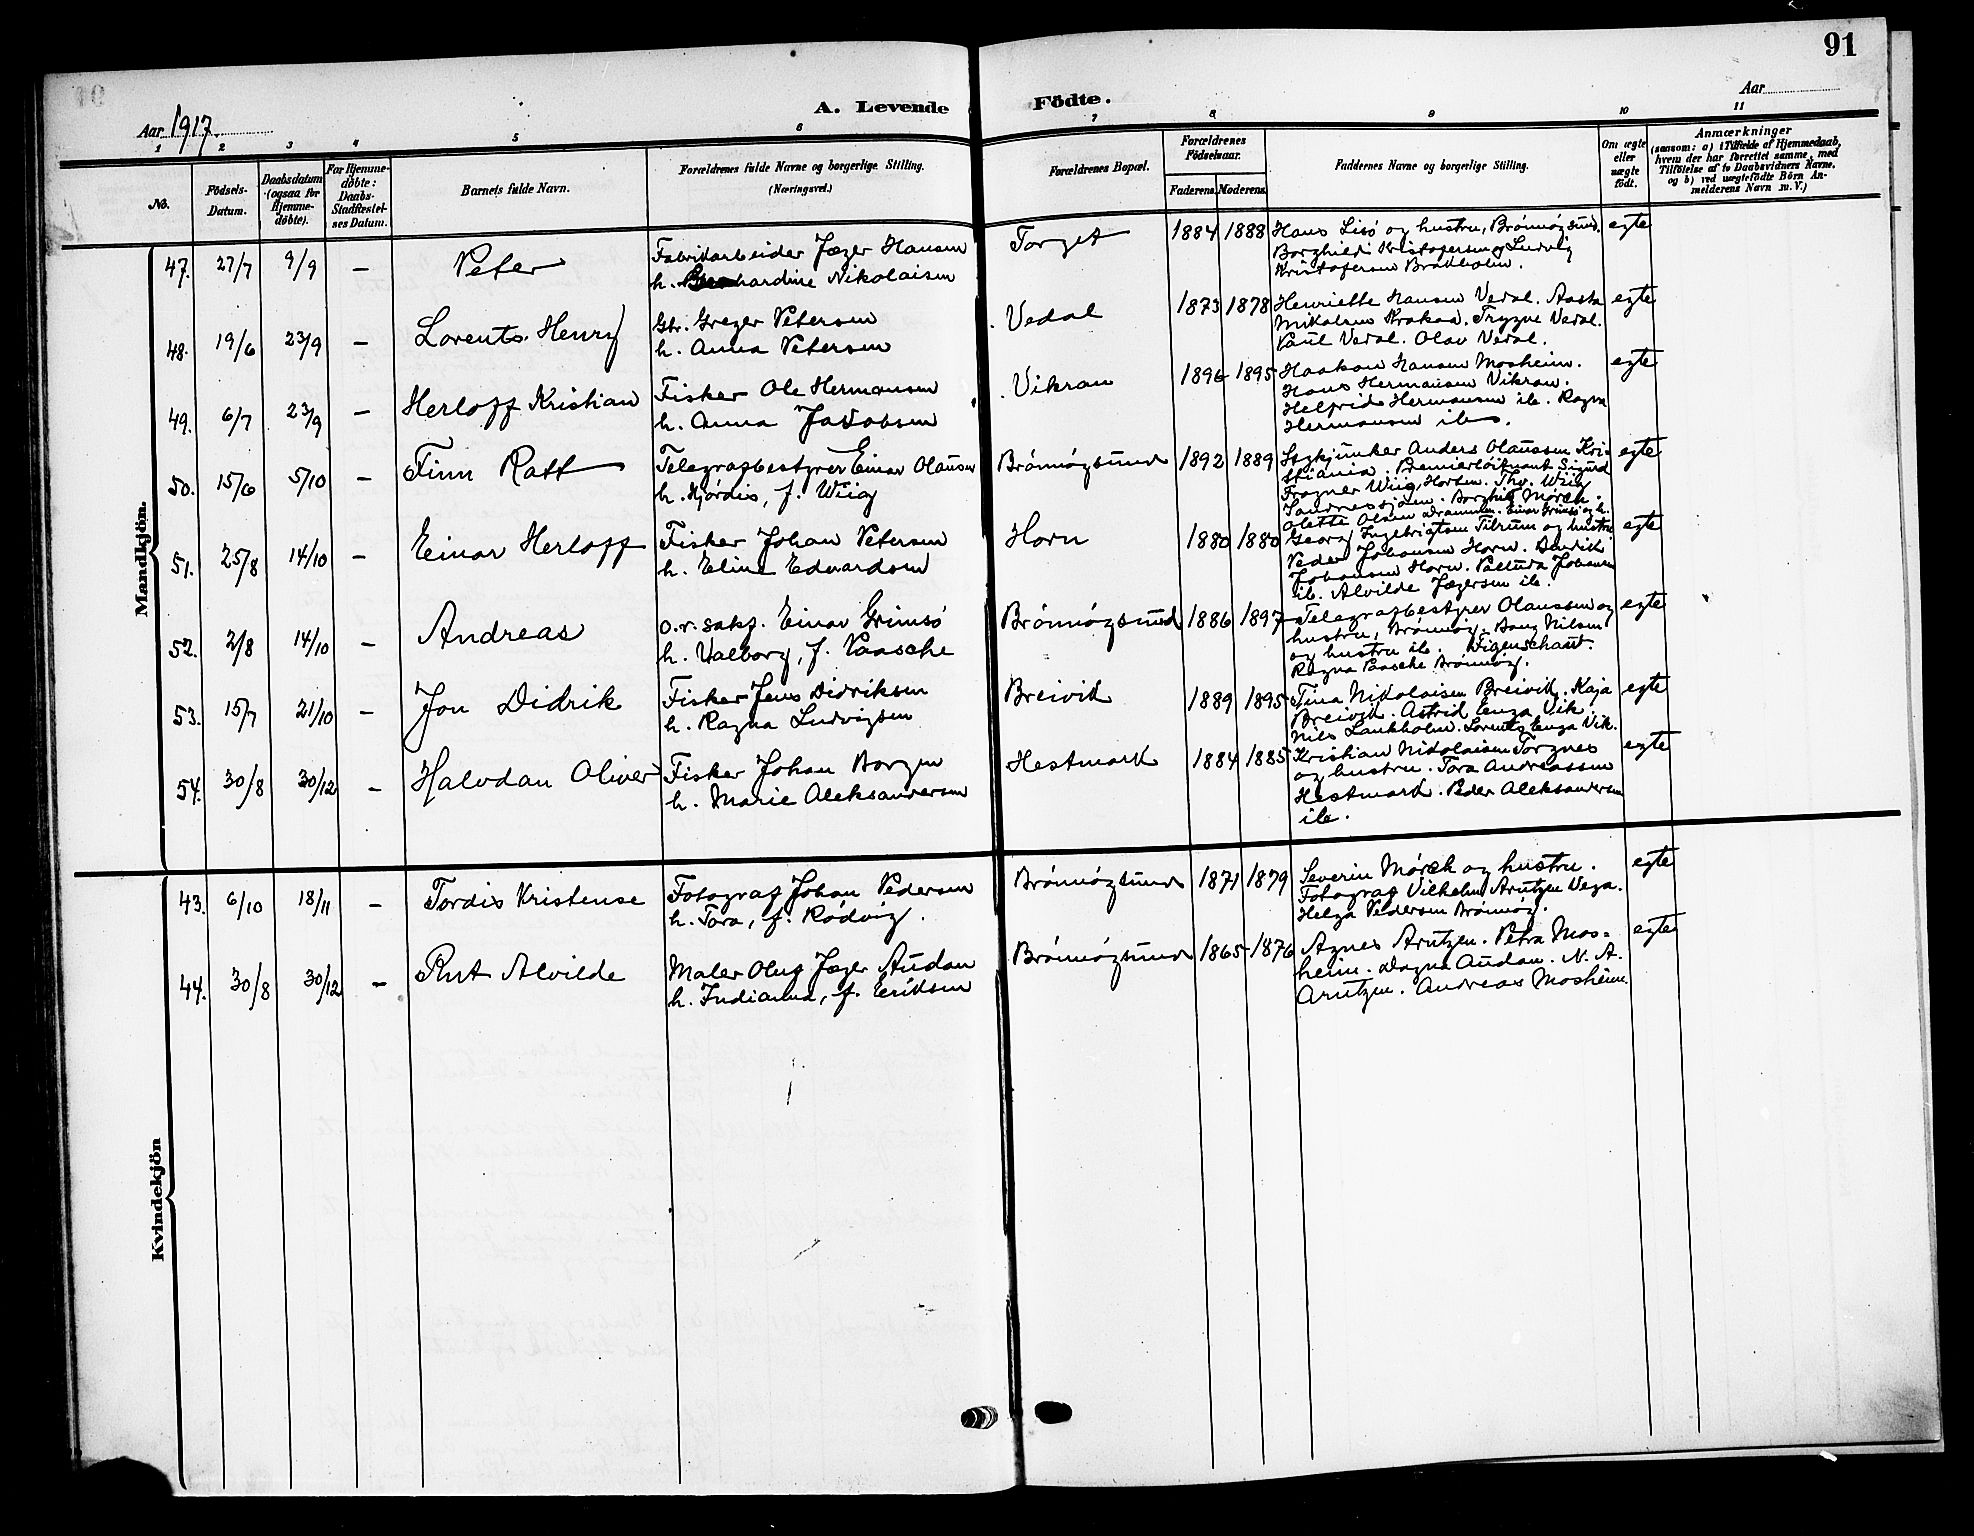 91
A. Levende Födte.
Aar 1917.
Aar
1 2 3 4 5 6 7 8 9 10 11
No.
Födsels-Datum.
Daabsdatum (ogsaa for Hjemme-döbte).
For Hjemme-döbte: Daabs-Stadfæstel-ses Datum.
Barnets fulde Navn.
Forældrenes fulde Navne og borgerlige Stilling.
(Næringsvei.)
Forældrenes Bopæl.
Forældrenes Födselsaar.
Faderens. Moderens.
Faddernes Navne og borgerlige Stilling.
Om ægte eller uægte födt.
Anmærkninger
(saasom: a) i Tilfælde af Hjemmedaab,
hvem der har forrettet samme, med
Tilföielse af to Daabsvidners Navne,
og b) ved uægtefödte Börn An-
melderens Navn m. V.)
Mandkjön.
47. 27/7 9/9 — Peter
Fabrikarbeider Jæger Hansen
h. Bernhardine Nikolaisen
Torget 1884 1888
Hans Lisö og hustru, Brönnögsund.
Borghild Kristofersen og Ludvig
Kristofersen Brakholm.
egte
48. 19/6 23/9 — Lorents Henry
Gbr. Greger Petersen
h. Anna Petersen
Vedal 1873 1878
Henriette Hansen Vedal. Aasta
Mikalsen Krokaa. Trygve Vedal.
Paul Vedal. Olav Vedal.
egte
49. 6/7 23/9 — Herloff Kristian
Fisker Ole Hermansen
h. Anna Jakobsen
Vikran 1896 1895
Haakon Hansen Mosheim.
Hans Hermansen Vikran.
Helfrid Hermansen ib. Ragna
Hermansen ib.
egte
50. 15/6 5/10 — Finn Ratt
Telegrafbestyrer Einar Olausen
h. Hjördis, f. Wiig
Brönnögsund 1892 1889
Anders Olaussen Kri-
stiania. Premierlöitnant Sigurd
Frogner Wiig, Horten. Thv. Wiig
Sandnessjöen. Borghild Mörch.
Olette Olsen Drammen. Einar Grimsö og h.
egte
51. 25/8 14/10 — Einar Herloff
Fisker Johan Petersen
h. Eline Edvardsen
Horn 1880 1880
Georg Ingebrigtsen Tilrum og hustru
Peder Johansen Horn. Henrik
Johansen Horn. Johansen
ib. Alvilde Jægersen ib.
egte
52. 2/8 14/10 — Andreas
o.r.sakf. Einar Grimsö
h. Valborg, f. Paasche
Brönnögsund 1886 1897
Telegrafbestyrer Olaussen og
hustru, Brönnög. Nilsen
og hustru ib. Wigenschaut.
Ragna Paasche Brönnög.
egte
53. 15/7 21/10 — Jon Didrik
Fisker Jens Didriksen
h. Ragna Ludvigsen
Breivik 1889 1895
Tina Nikolaisen Breivik. Kaja
Breivik. Astrid Enga Vik
Nils Lankholm. Lorents Enga Vik.
egte
54. 30/8 30/12 — Halvdan Oliver
Fisker Johan Borgen
h. Marie Aleksandersen
Hestmark 1884 1885
Kristian Nikolaisen Torgnes
og hustru. Tora Andreassen
Hestmark. Peder Aleksandersen
ib.
egte
Kvindekjön
43. 6/10 18/11 — Tordis Kristense
Fotograf Johan Pedersen
h. Tora, f. Rödvig.
Brönnögsund 1871 1879
Severin Mörch og hustru.
Fotograf Vilhelm Arntzen Vega.
Helga Pedersen Brönnög.
egte
44. 30/8 30/12 — Rut Alvilde
Maler Oluf Jæger Audan
h. Indianna, f. Eriksen
Brönnögsund 1865 1876
Agnes Arntzen. Petra Mos-
heim. Dagny Audan. N. A.
Arntzen. Andreas Mosheim.
egte